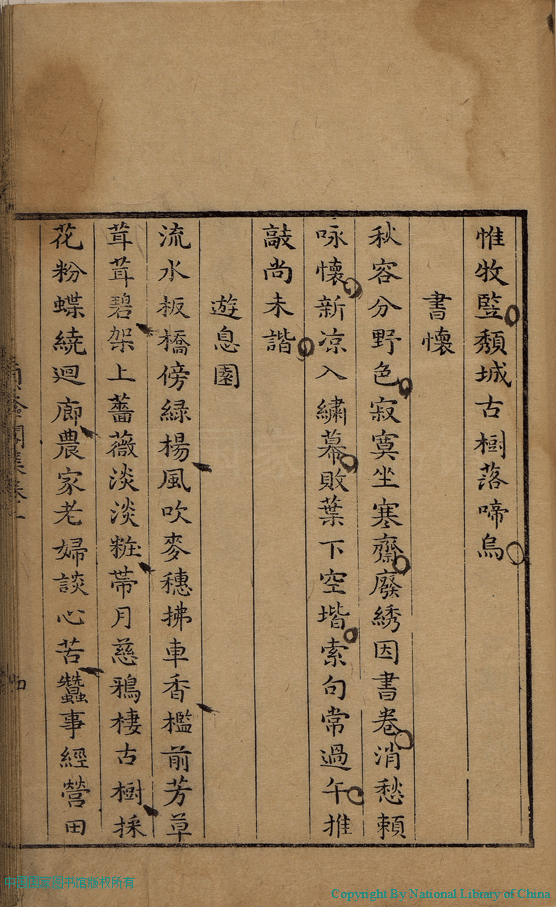 惟牧豎頹城古樹落啼烏
書懷
秋容分野色寂寞坐寒齋廢綉因書卷消愁賴
咏懷新凉入繡幕敗葉下空堦索句常過午推
敲尚未諧
遊息園
流水板橋傍緑楊風吹麥穗拂車香檻前芳草
茸茸碧架上薔薇淡淡粧蒂月慈鴉棲古樹採
花粉蝶繞迴廊農家老婦談心苦蠶事經營田
Copyright By National Library of China